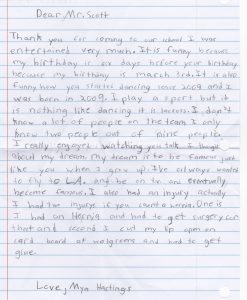 Dear Mr. Scott
Thank you for coming to our school I was
entertained very much. It is funny because
my birthday is six days before your birthday
because my birthday is march 3rd. It is also
funny how you started dancing since 2009 and I
was born in 2009. I play a sport but it
is nothing like dancing it is lacross. I don't
know a lot of people on the team I only
know two people out of nine people.
I really enjoyed watching you talk. I thought
about my dream. my dream is to be famous just
like you when I grow up I've always wanted
to fly to L.A. and be on tv and eventually
become famous. I also had an injury actually
I had two injurys if you count a hernia. One is
I had an Hernia and had to get surgery on
that and second I cut my lip open on
card board at walgreens and had to get
glue.
Love, Mya Hastings